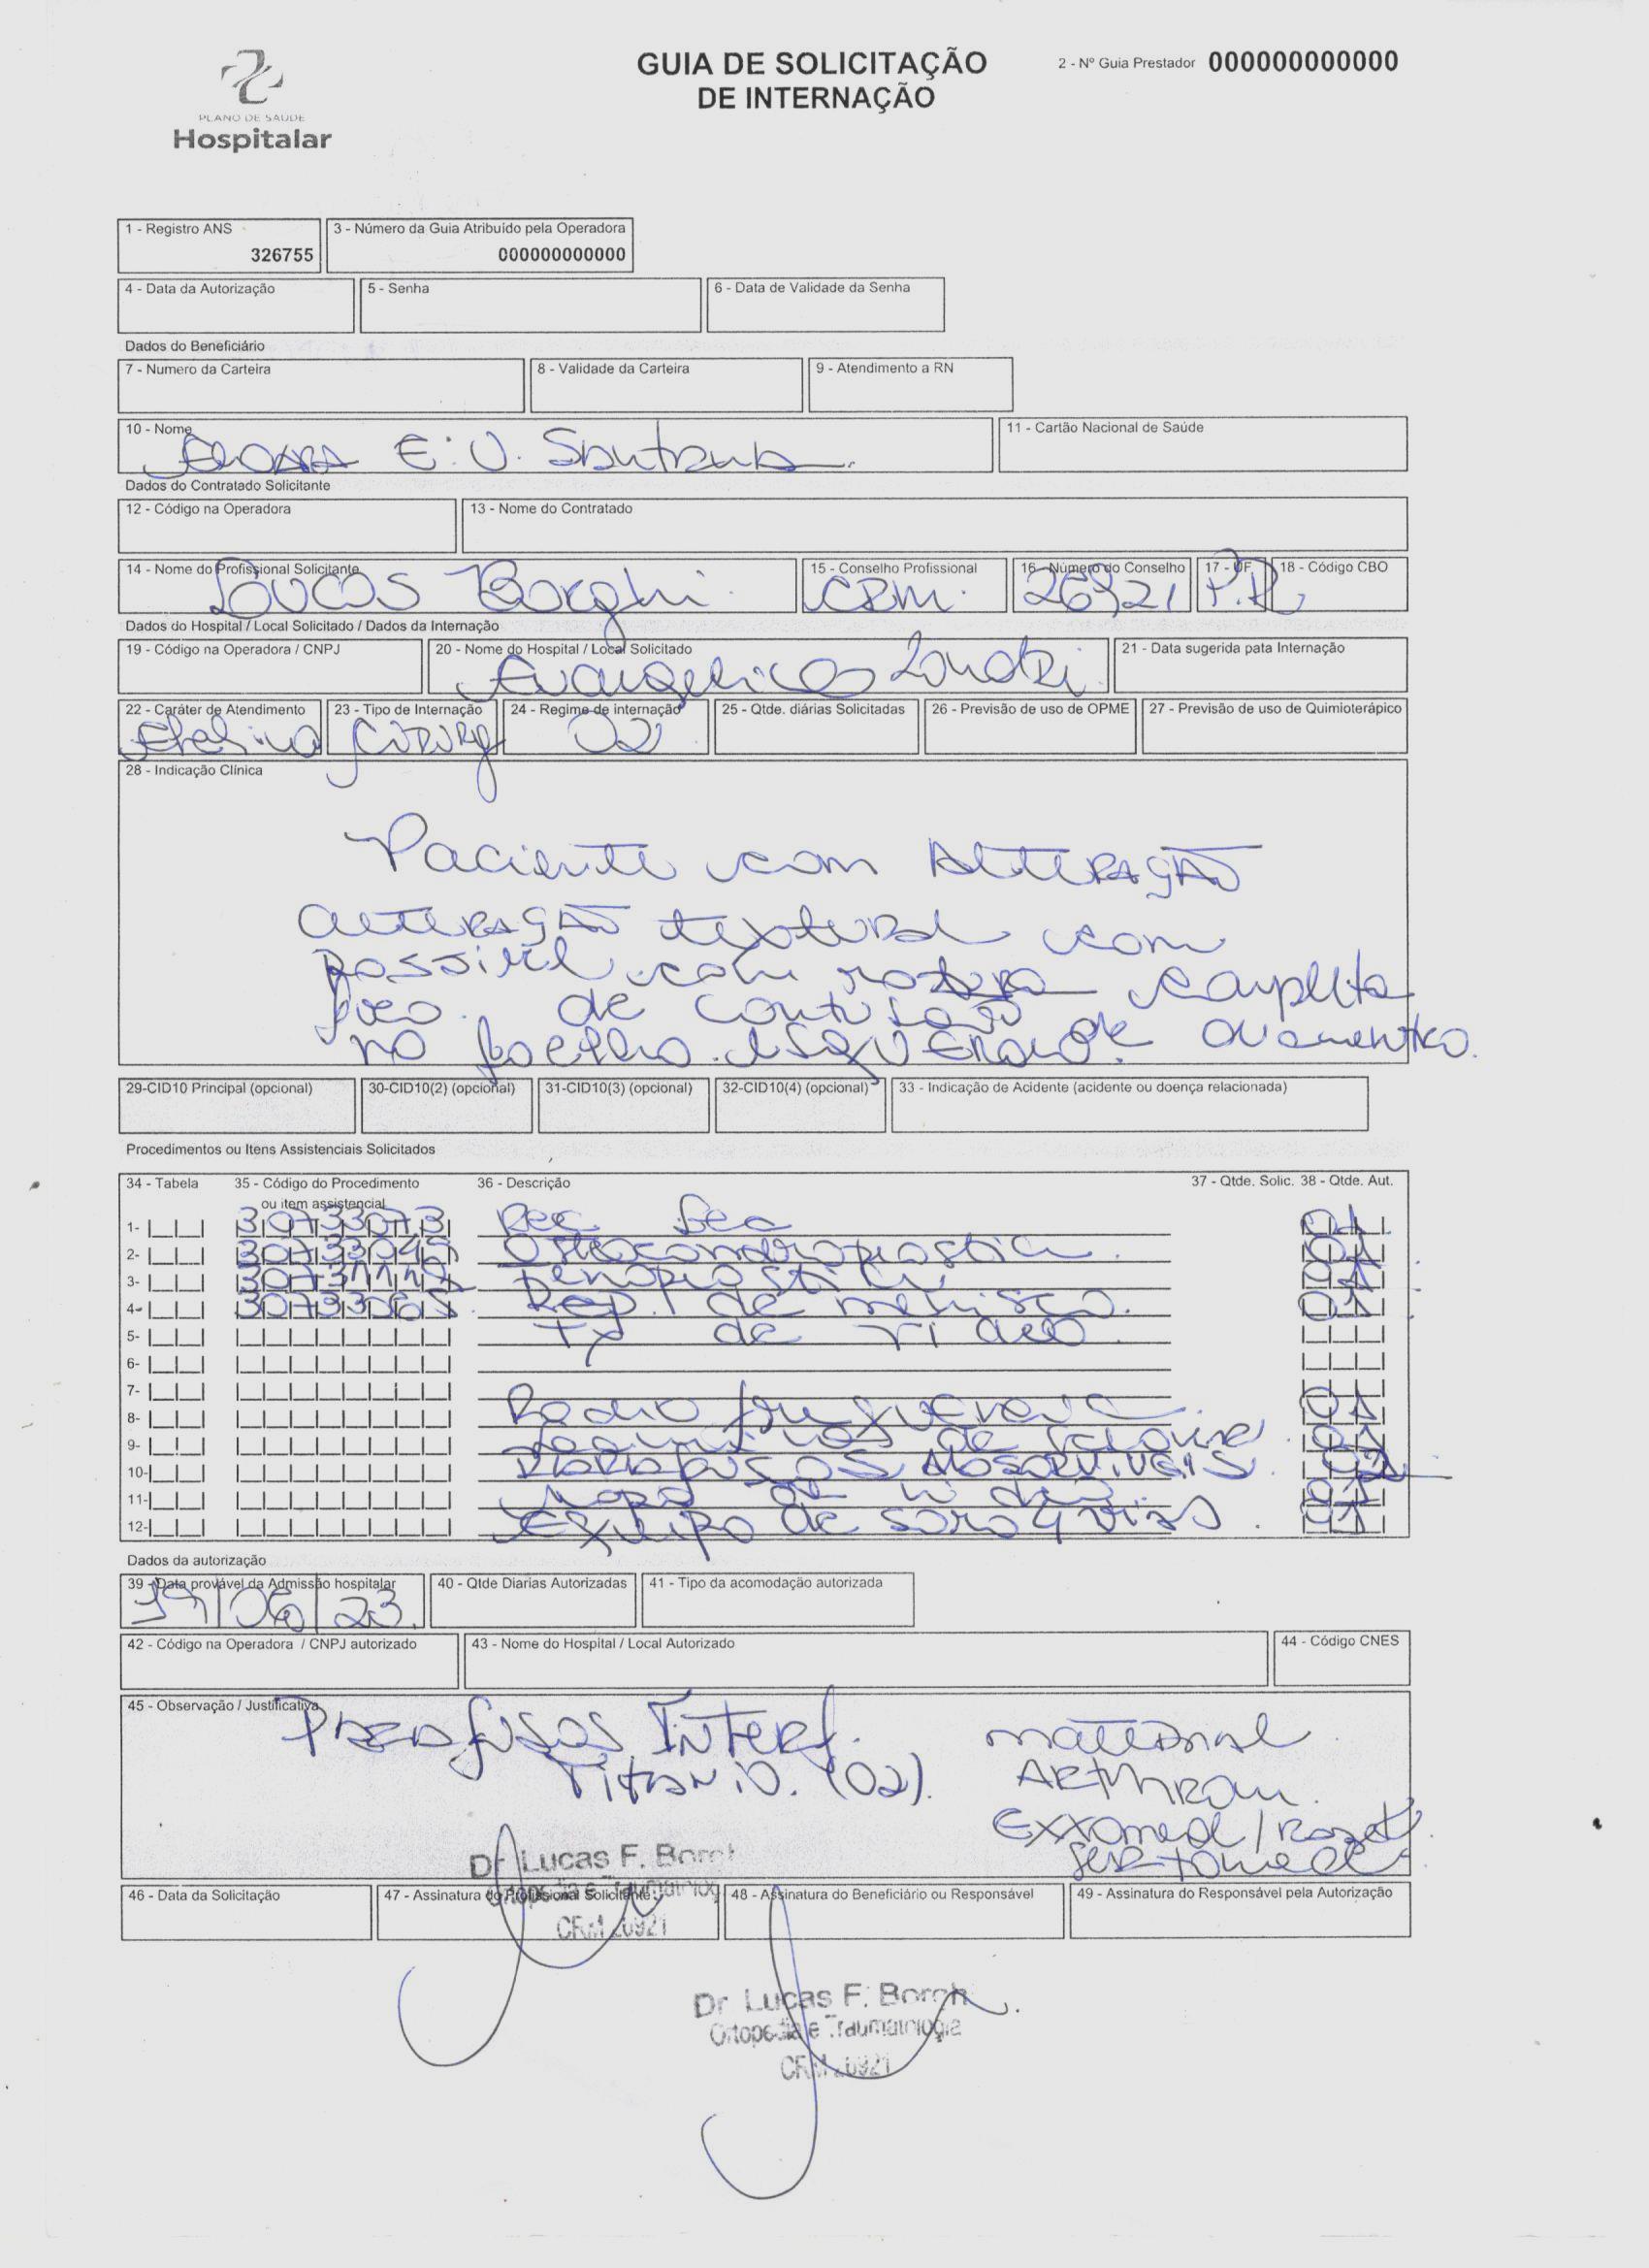 PLANO DE SAÚDE
Hospitalar
GUIA DE SOLICITAÇÃO
DE INTERNAÇÃO
2 - Nº Guia Prestador 000000000000
1 - Registro ANS
326755
3 - Número da Guia Atribuído pela Operadora
000000000000
4 - Data da Autorização
5 - Senha
6 - Data de Validade da Senha
Dados do Beneficiário
7 - Numero da Carteira
8 - Validade da Carteira
9 - Atendimento a RN
10 - Nome
E. V. Santana
11 - Cartão Nacional de Saúde
Dados do Contratado Solicitante
12 - Código na Operadora
13 - Nome do Contratado
14 - Nome do Profissional Solicitante
Lucas Borghi
15 - Conselho Profissional
CRM.
16 - Número do Conselho
26921
17 - UF
P.R
18 - Código CBO
Dados do Hospital / Local Solicitado / Dados da Internação
19 - Código na Operadora / CNPJ
20 - Nome do Hospital / Local Solicitado
Evangelico
21 - Data sugerida pata Internação
22 - Caráter de Atendimento
23 - Tipo de Internação
24 - Regime de internação
25 - Qtde. diárias Solicitadas
26 - Previsão de uso de OPME
27 - Previsão de uso de Quimioterápico
28 - Indicação Clínica
Paciente com ALTERAÇÃO
ALTERAÇÃO textural com
possivel com rotura completa
foco de contusão
no joelho esquerdo. de
29-CID10 Principal (opcional)
30-CID10(2) (opcional)
31-CID10(3) (opcional)
32-CID10(4) (opcional)
33 - Indicação de Acidente (acidente ou doença relacionada)
Procedimentos ou Itens Assistenciais Solicitados
34 - Tabela
35 - Código do Procedimento
ou item assistencial
36 - Descrição
37 - Qtde. Solic.
38 - Qtde. Aut.
1- 30733073 Rec 01
2- 01
3- 01
4- 30733065 Rep. de menisco. 01
5- de video
6-
7-
8- Radio frequencia 01
9- de 01
10- PARAFUSOS ABSORVIVEIS 02
11- 01
12- Equipo de soro 4 vias. 01
Dados da autorização
39 - Data provável da Admissão hospitalar
19/06/23
40 - Qtde Diarias Autorizadas
41 - Tipo da acomodação autorizada
42 - Código na Operadora / CNPJ autorizado
43 - Nome do Hospital / Local Autorizado
44 - Código CNES
45 - Observação / Justificativa
PARAFUSOS INTERF.
Titanio. (02).
material
Exxomed /
46 - Data da Solicitação
47 - Assinatura do Profissional Solicitante
48 - Assinatura do Beneficiário ou Responsável
49 - Assinatura do Responsável pela Autorização
Dr Lucas F. Borgh
Ortopedia e Traumatologia
CRM 26921
Dr Lucas F. Borgh
Ortopedia e Traumatologia
CRM 26921